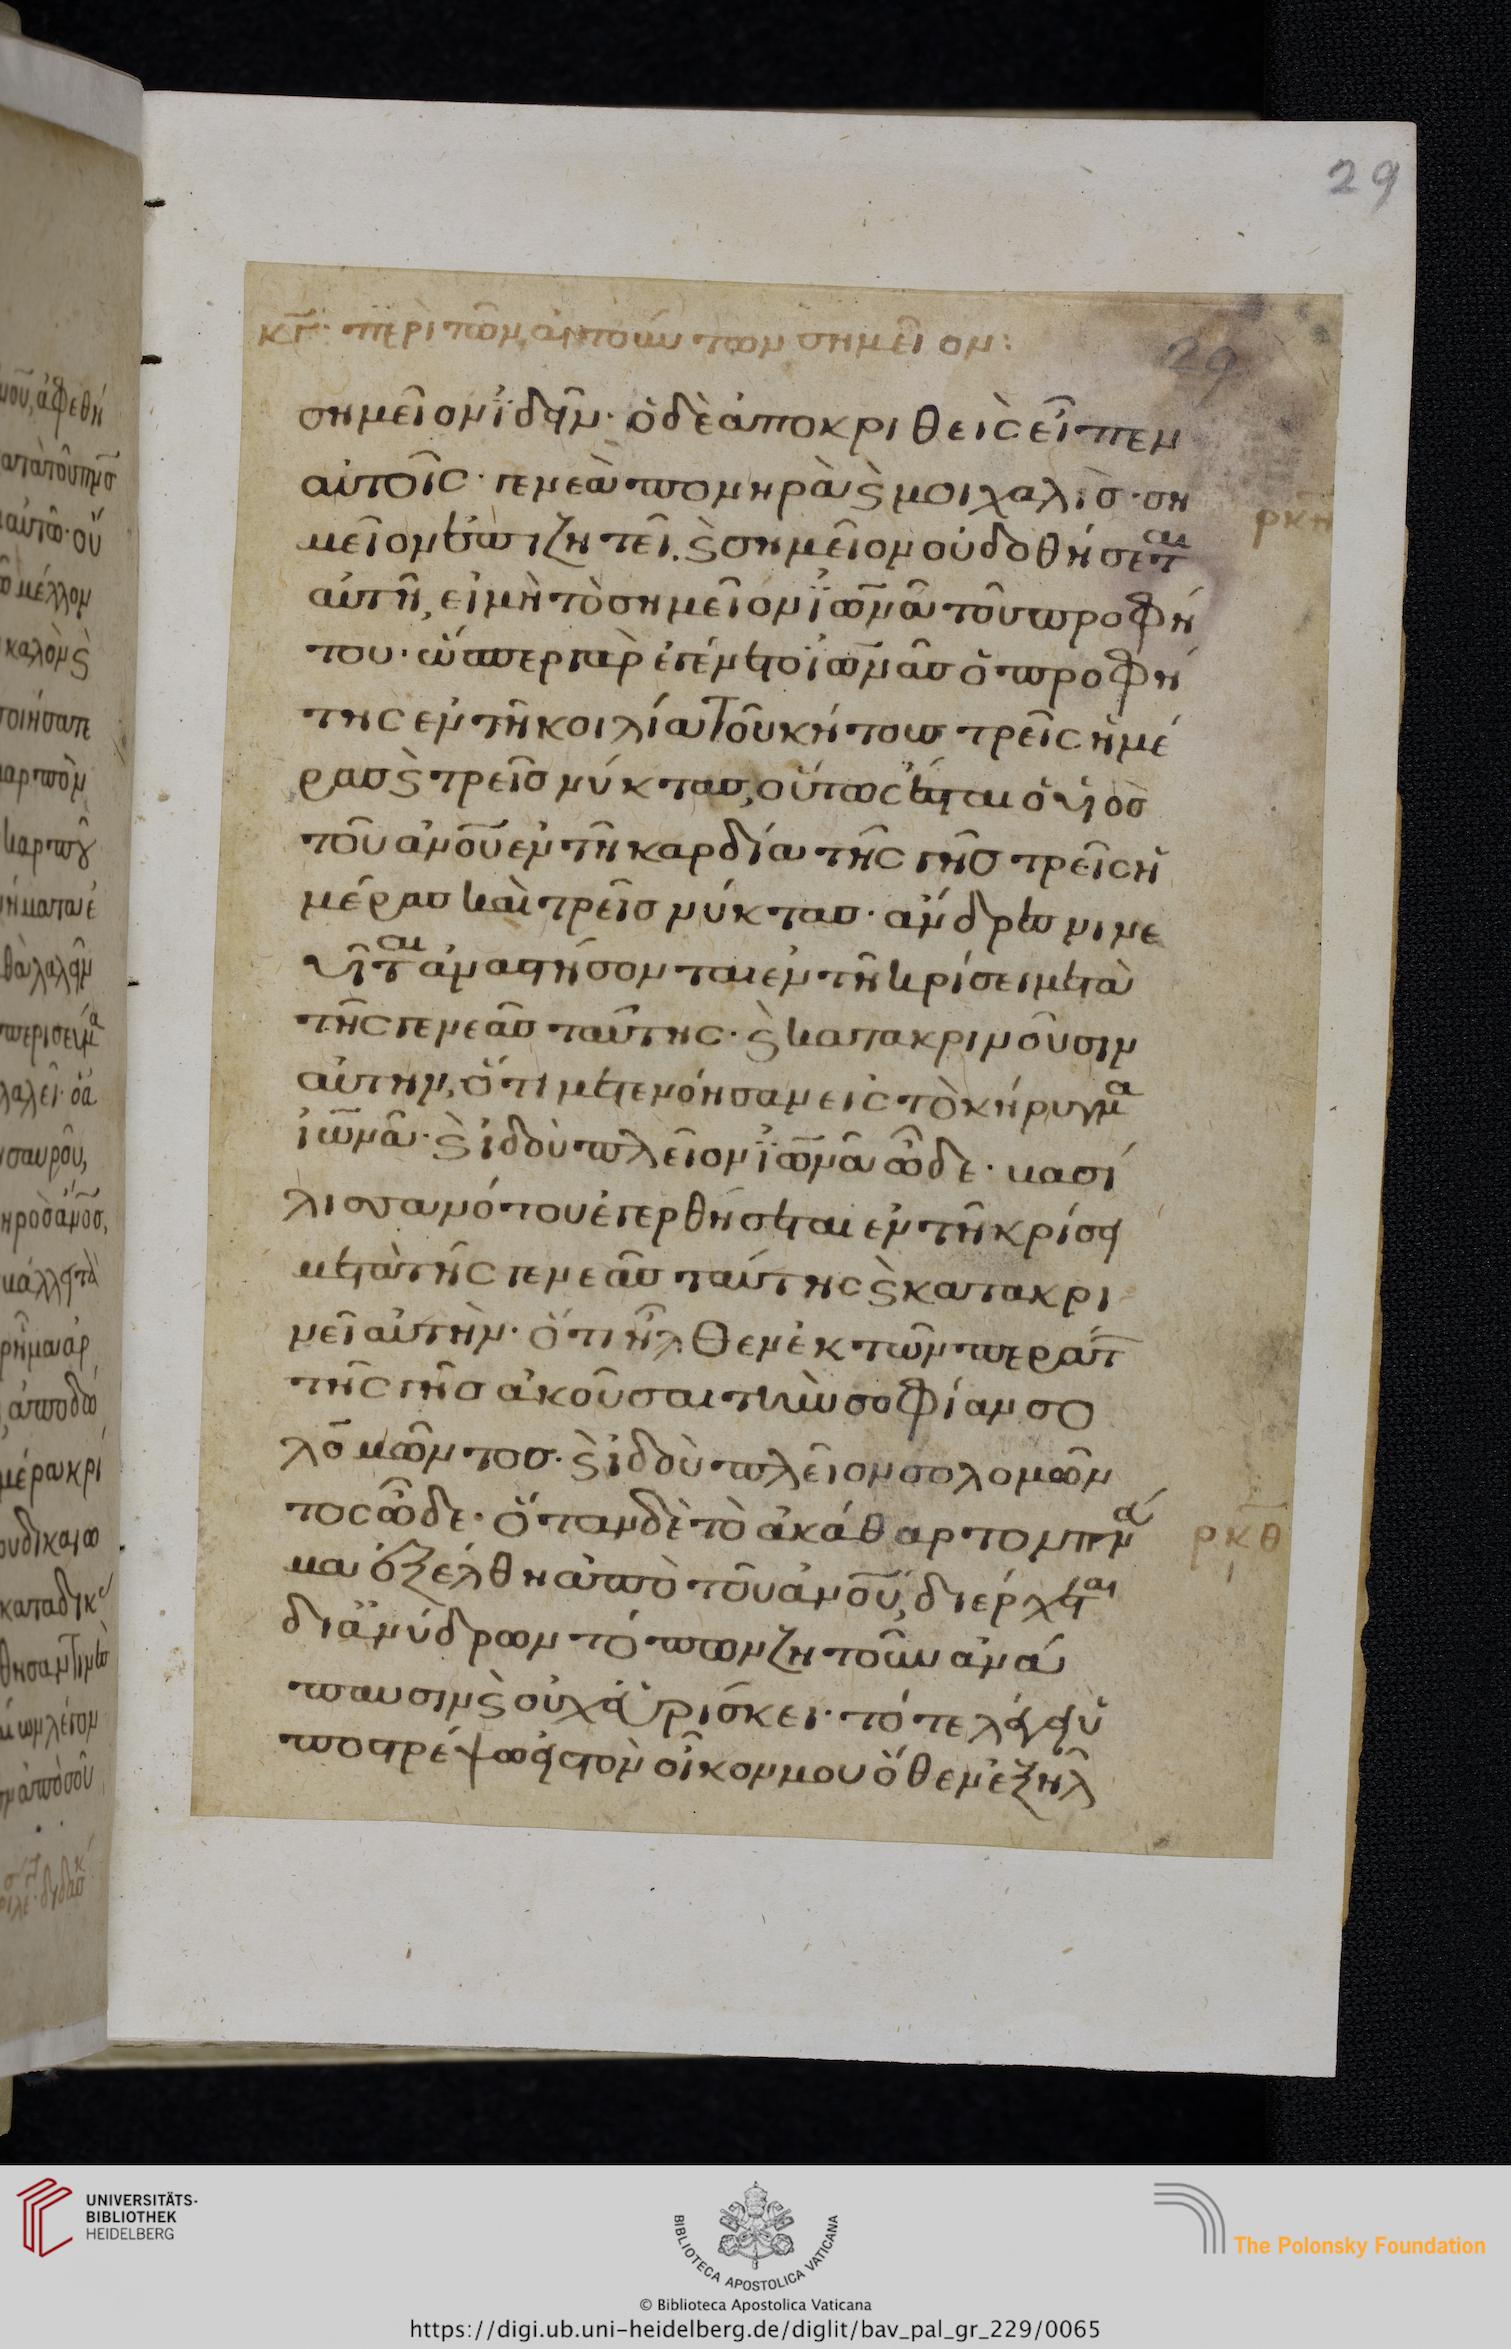 29
κγ· περὶ τῶν αἰτούντων σημεῖον:
29
σημεῖον ἰδεῖν· ὁ δὲ ἀποκριθεὶς εἶπεν
αὐτοῖς· γενεὰ πονηρὰ ϗ μοιχαλὶσ· ση
ρκη
μεῖον ἐπιζητεῖ. ϗ σημεῖον οὐ δοθήσεται
αὐτῆ, εἰ μὴ τὸ σημεῖον ἰωνᾶ τοῦ προφή
του· ὥσπερ γὰρ ἐγένετο ἰωνᾶσ ὁ προφή
της ἐν τῆ κοιλία τοῦ κήτουσ τρεῖς ἡμέ
ρασ ϗ τρεῖσ νύκτασ, οὕτως ἔσται ὁ υἱὸσ
τοῦ ἀνοῦ ἐν τῆ καρδία τῆς γῆσ τρεῖς ἡ
μέρασ καὶ τρεῖσ νύκτασ· ἄνδρεσ νινε
υῖται ἀναστήσονται ἐν τῆ κρίσει μετὰ
τῆς γενεᾶσ ταύτης· ϗ κατακρινοῦσιν
αὐτην, ὅτι μετενόησαν εἰς τὸ κήρυγμα
ἰωνᾶ· ϗ ἰδοὺ πλεῖον ἰωνᾶ ὧδε· βασί
λισσα νότου ἐγερθήσεται ἐν τῆ κρίσει
μετὰ τῆς γενεᾶσ ταύτης ϗ κατακρι
νεῖ αὐτὴν· ὅτι ἦλθεν ἐκ τῶν περάτ
τῆς γῆσ ἀκοῦσαι τὴν σοφίαν σο
λομῶντοσ· ϗ ἰδοὺ πλεῖον σολομῶν
τος ὧδε· ὅταν δὲ τὸ ἀκάθαρτον πνα
ρκθ
μα ἐξέλθη ἀπὸ τοῦ ἀνοῦ, διέρχεται
δι ἀνύδρων τόπων ζητοῦν ἀνά
παυσιν ϗ οὐχ εὑρίσκει· τότε λέγει ὑ
ποστρέψω εἰς τὸν οἶκον μου ὅθεν ἐξῆλ
UNIVERSITÄTS-
BIBLIOTHEK
HEIDELBERG
BIBLIOTECA APOSTOLICA VATICANA
The Polonsky Foundation
© Biblioteca Apostolica Vaticana
https://digi.ub.uni-heidelberg.de/diglit/bav_pal_gr_229/0065